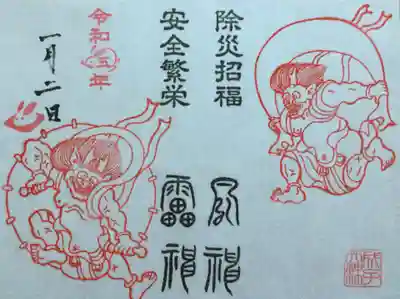 除災招福
風神
安全繁栄
雷神
令和五年
一月二日
成子
天神社